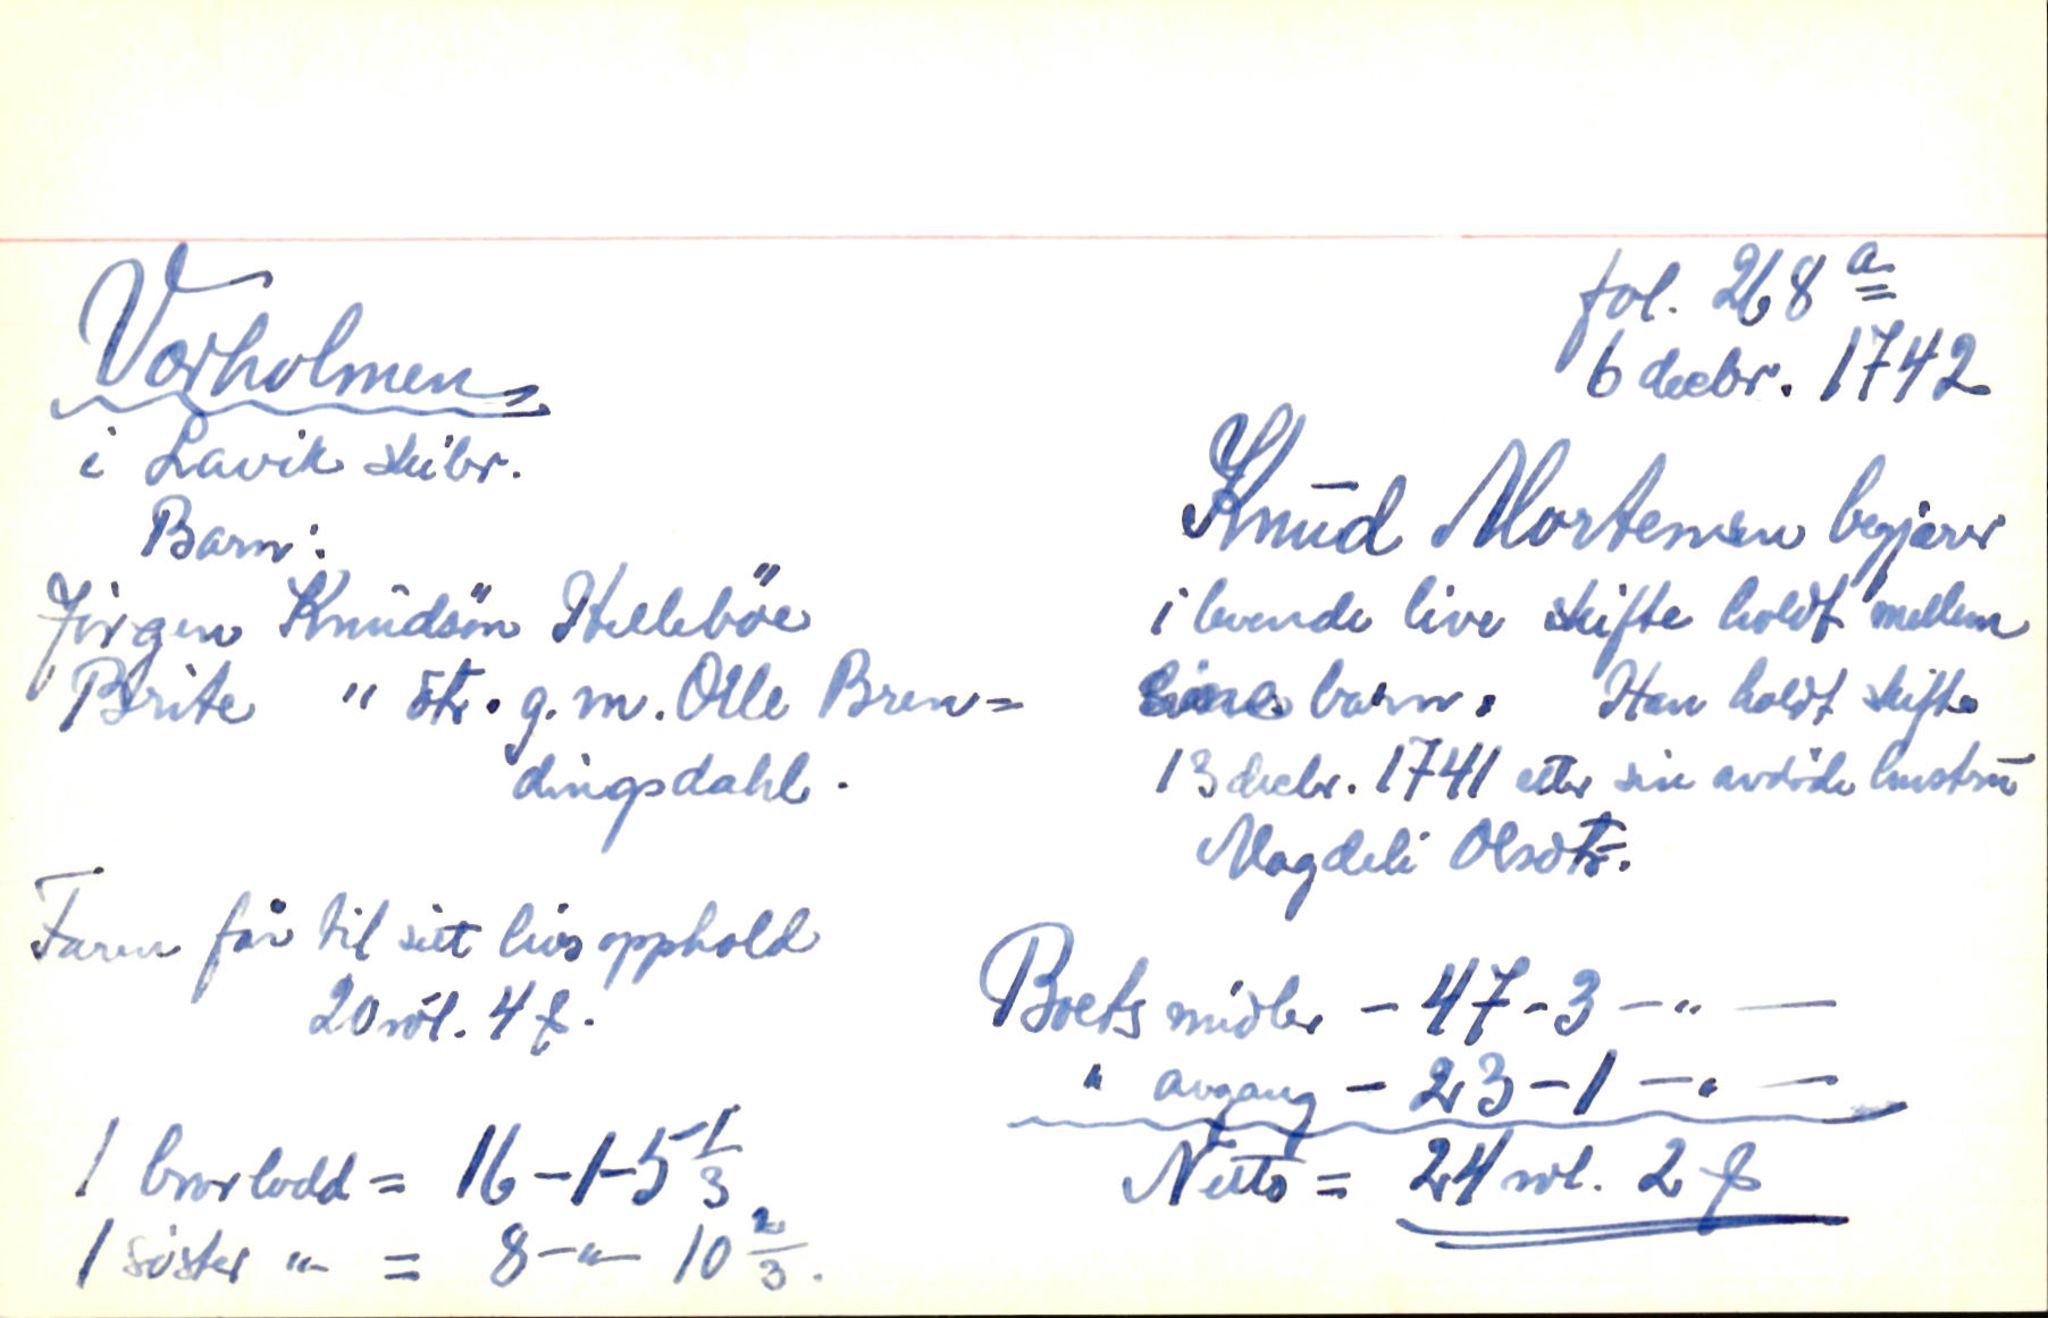 Vorholmen
i Lavik skibr.
Barn:
Jörgen Knudsön Helleböe
Brite " dtr. g. m. Olle Bren=
dingsdahl.
Faren får til sitt livsopphold
20 rdl. 4 ₻.
1 brorlodd = 16-1-5 1/3
1 søster " = 8-"- 10 2/3.
fol. 268 a
6 decbr. 1742
Knud Mortensen begjærer
i levende live skifte holdt mellem
sine barn. Han holdt skifte
13 decbr. 1741 etter sin avdöde hustru
Magdeli Olsdtr.
Boets midler - 47-3 - " -
" avgang - 23-1 - " -
Netto = 24 rdl. 2 ₻